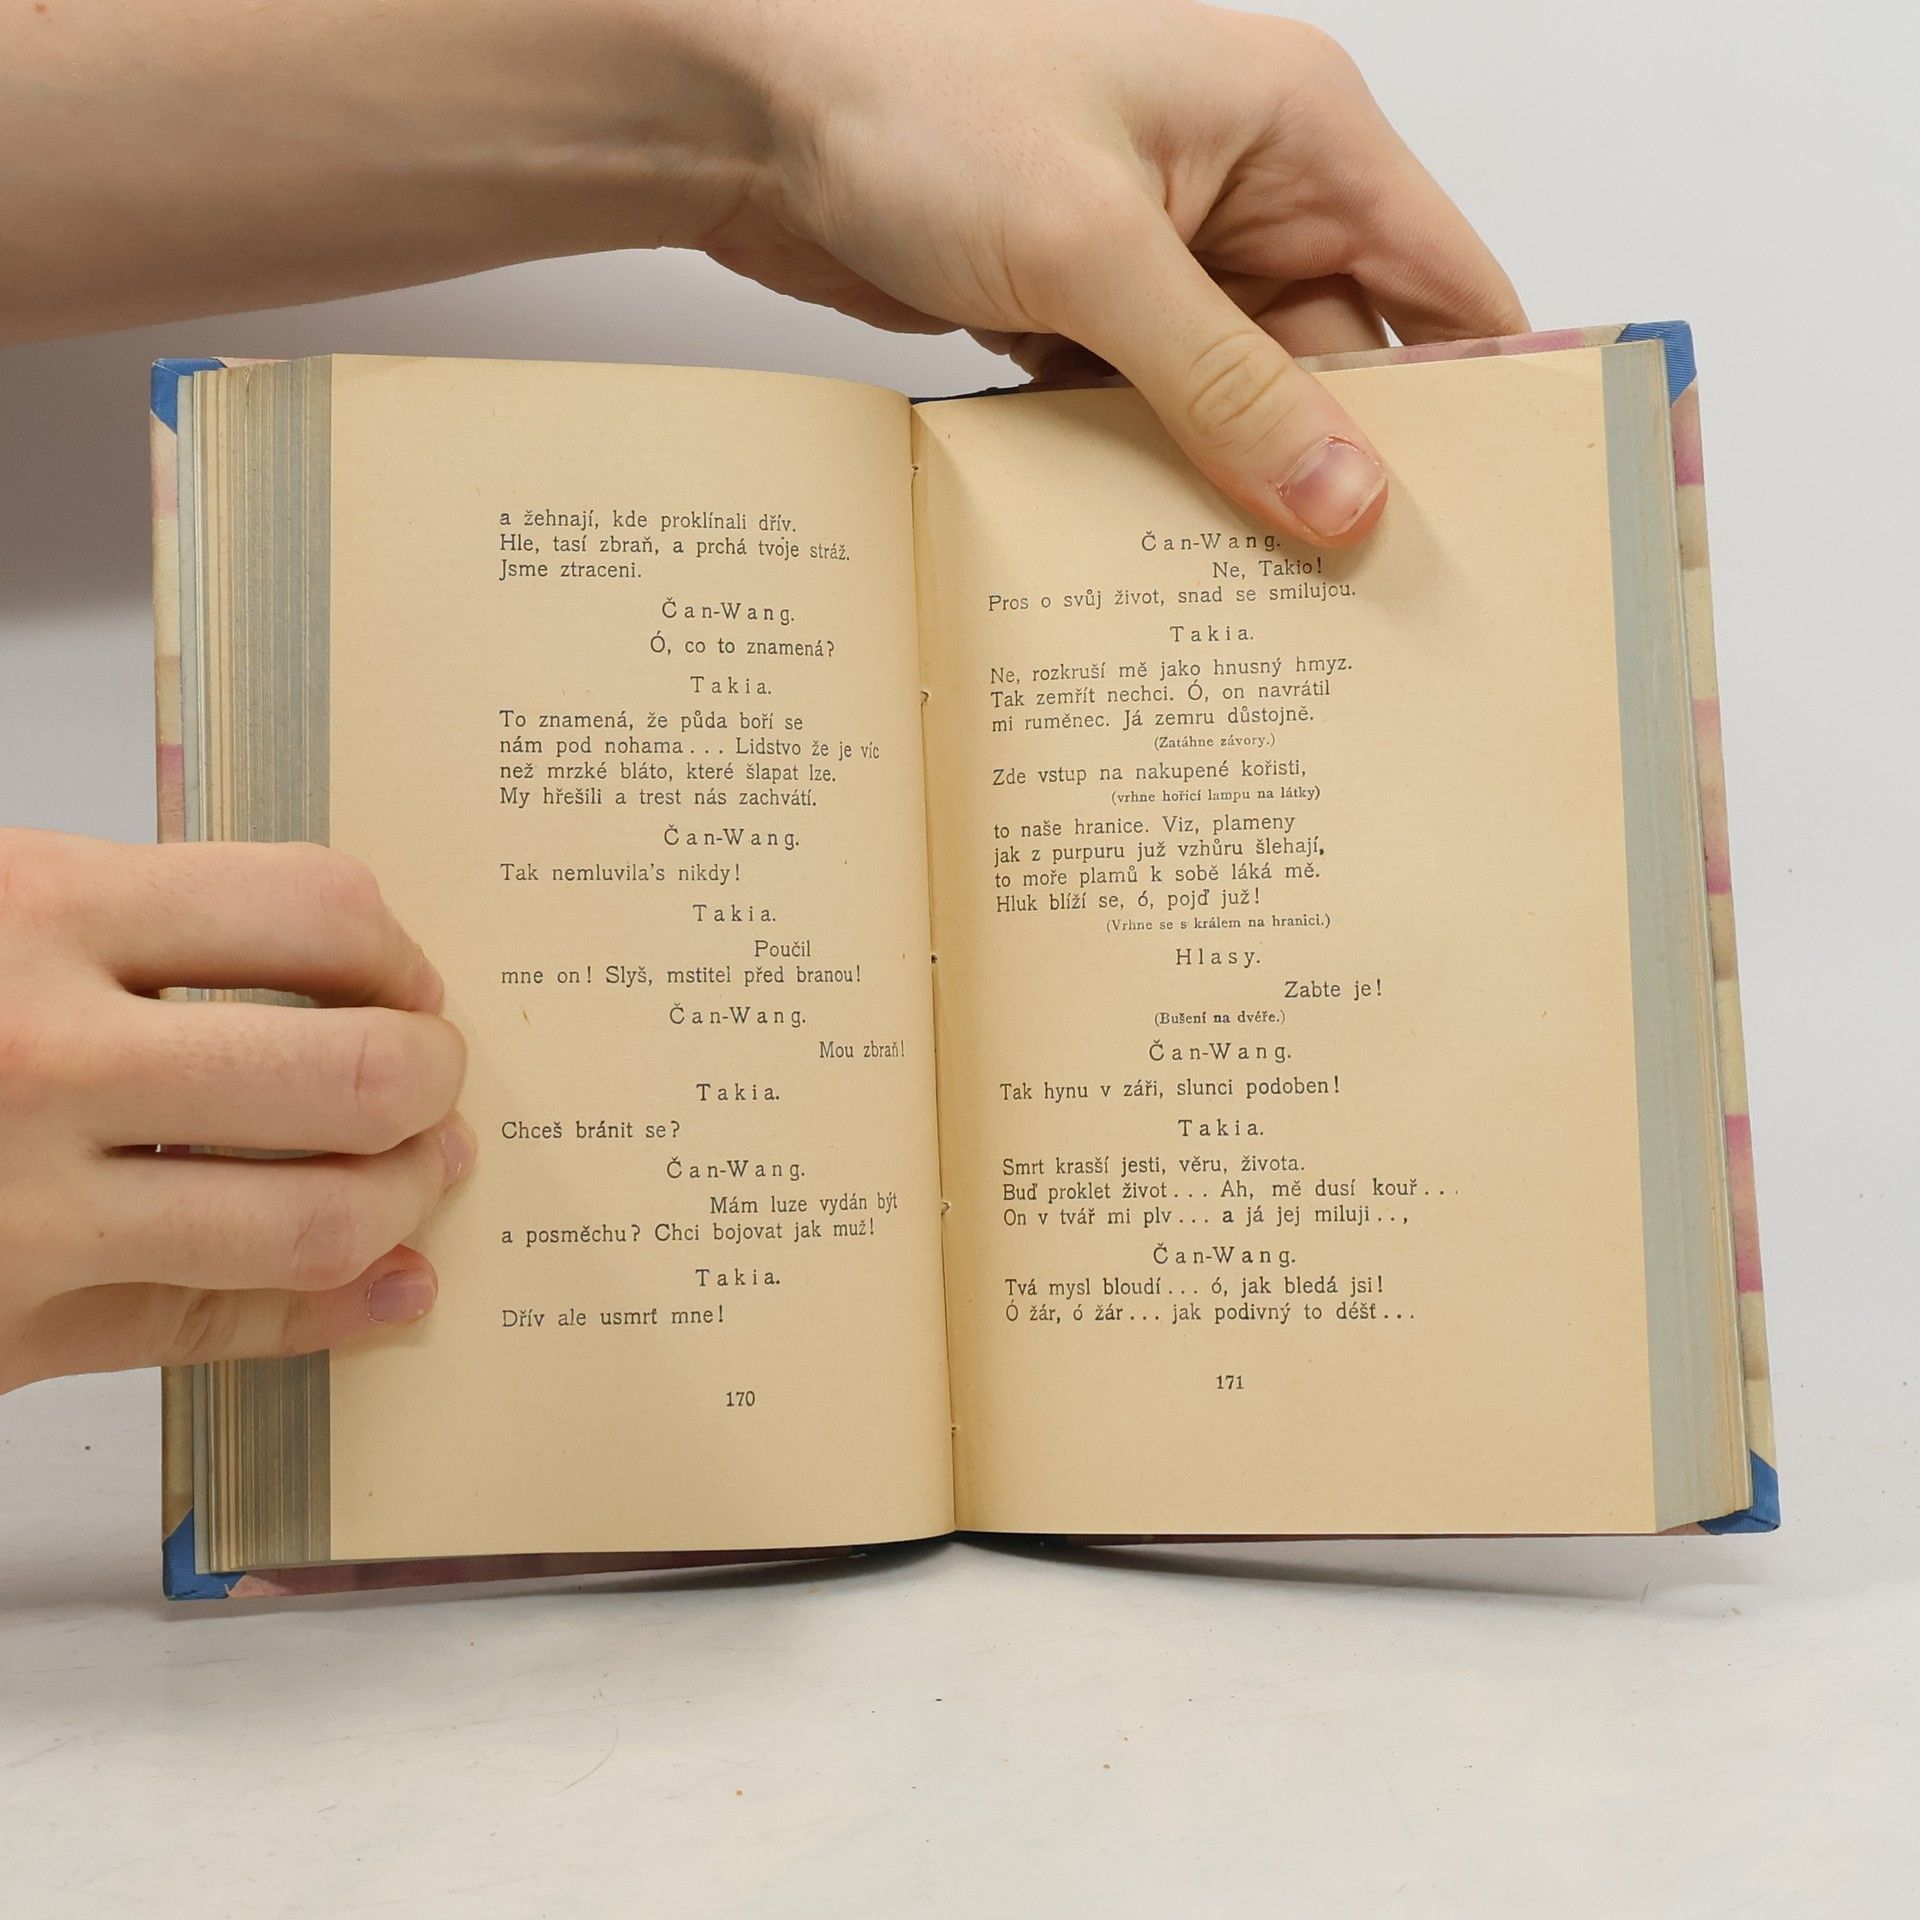 a žehnají, kde proklínali dřív.
Hle, tasí zbraň, a prchá tvoje stráž.
Jsme ztraceni.
Čan-Wang.
Ó, co to znamená?
Takia.
To znamená, že půda boří se
nám pod nohama... Lidstvo že je víc
než mrzké bláto, které šlapat lze.
My hřešili a trest nás zachvátí.
Čan-Wang.
Tak nemluvila's nikdy!
Takia.
Poučil
mne on! Slyš, mstitel před branou!
Čan-Wang.
Mou zbraň!
Takia.
Chceš bránit se?
Čan-Wang.
Mám luze vydán být
a posměchu? Chci bojovat jak muž!
Takia.
Dřív ale usmrť mne!
170
Čan-Wang.
Ne, Takio!
Pros o svůj život, snad se smilujou.
Takia.
Ne, rozkruší mě jako hnusný hmyz.
Tak zemřít nechci. Ó, on navrátil
mi ruměnec. Já zemru důstojně.
(Zatáhne závory.)
Zde vstup na nakupené kořisti,
(vrhne hořicí lampu na látky)
to naše hranice. Viz, plameny
jak z purpuru již vzhůru šlehají,
to moře plamů k sobě láká mě.
Hluk blíží se, ó, pojď již!
(Vrhne se s králem na hranici.)
Hlasy.
Zabte je!
(Bušení na dvéře.)
Čan-Wang.
Tak hynu v záři, slunci podoben!
Takia.
Smrt krasší jesti, věru, života.
Buď proklet život... Ah, mě dusí kouř...
On v tvář mi plv... a já jej miluji..,
Čan-Wang.
Tvá mysl bloudí... ó, jak bledá jsi!
Ó žár, ó žár... jak podivný to déšť...
171